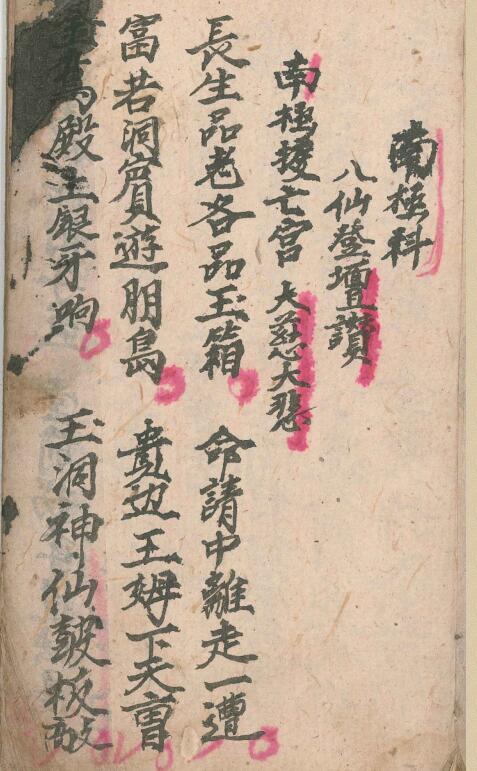 南極科
八仙登壇讚
南極拔亡宮 大慈大悲
長生品老各品玉箱 命請中離走一遭
富若洞賓遊朋島 貴边王姆下天曹
殿上銀牙响 玉洞神仙皷板敲